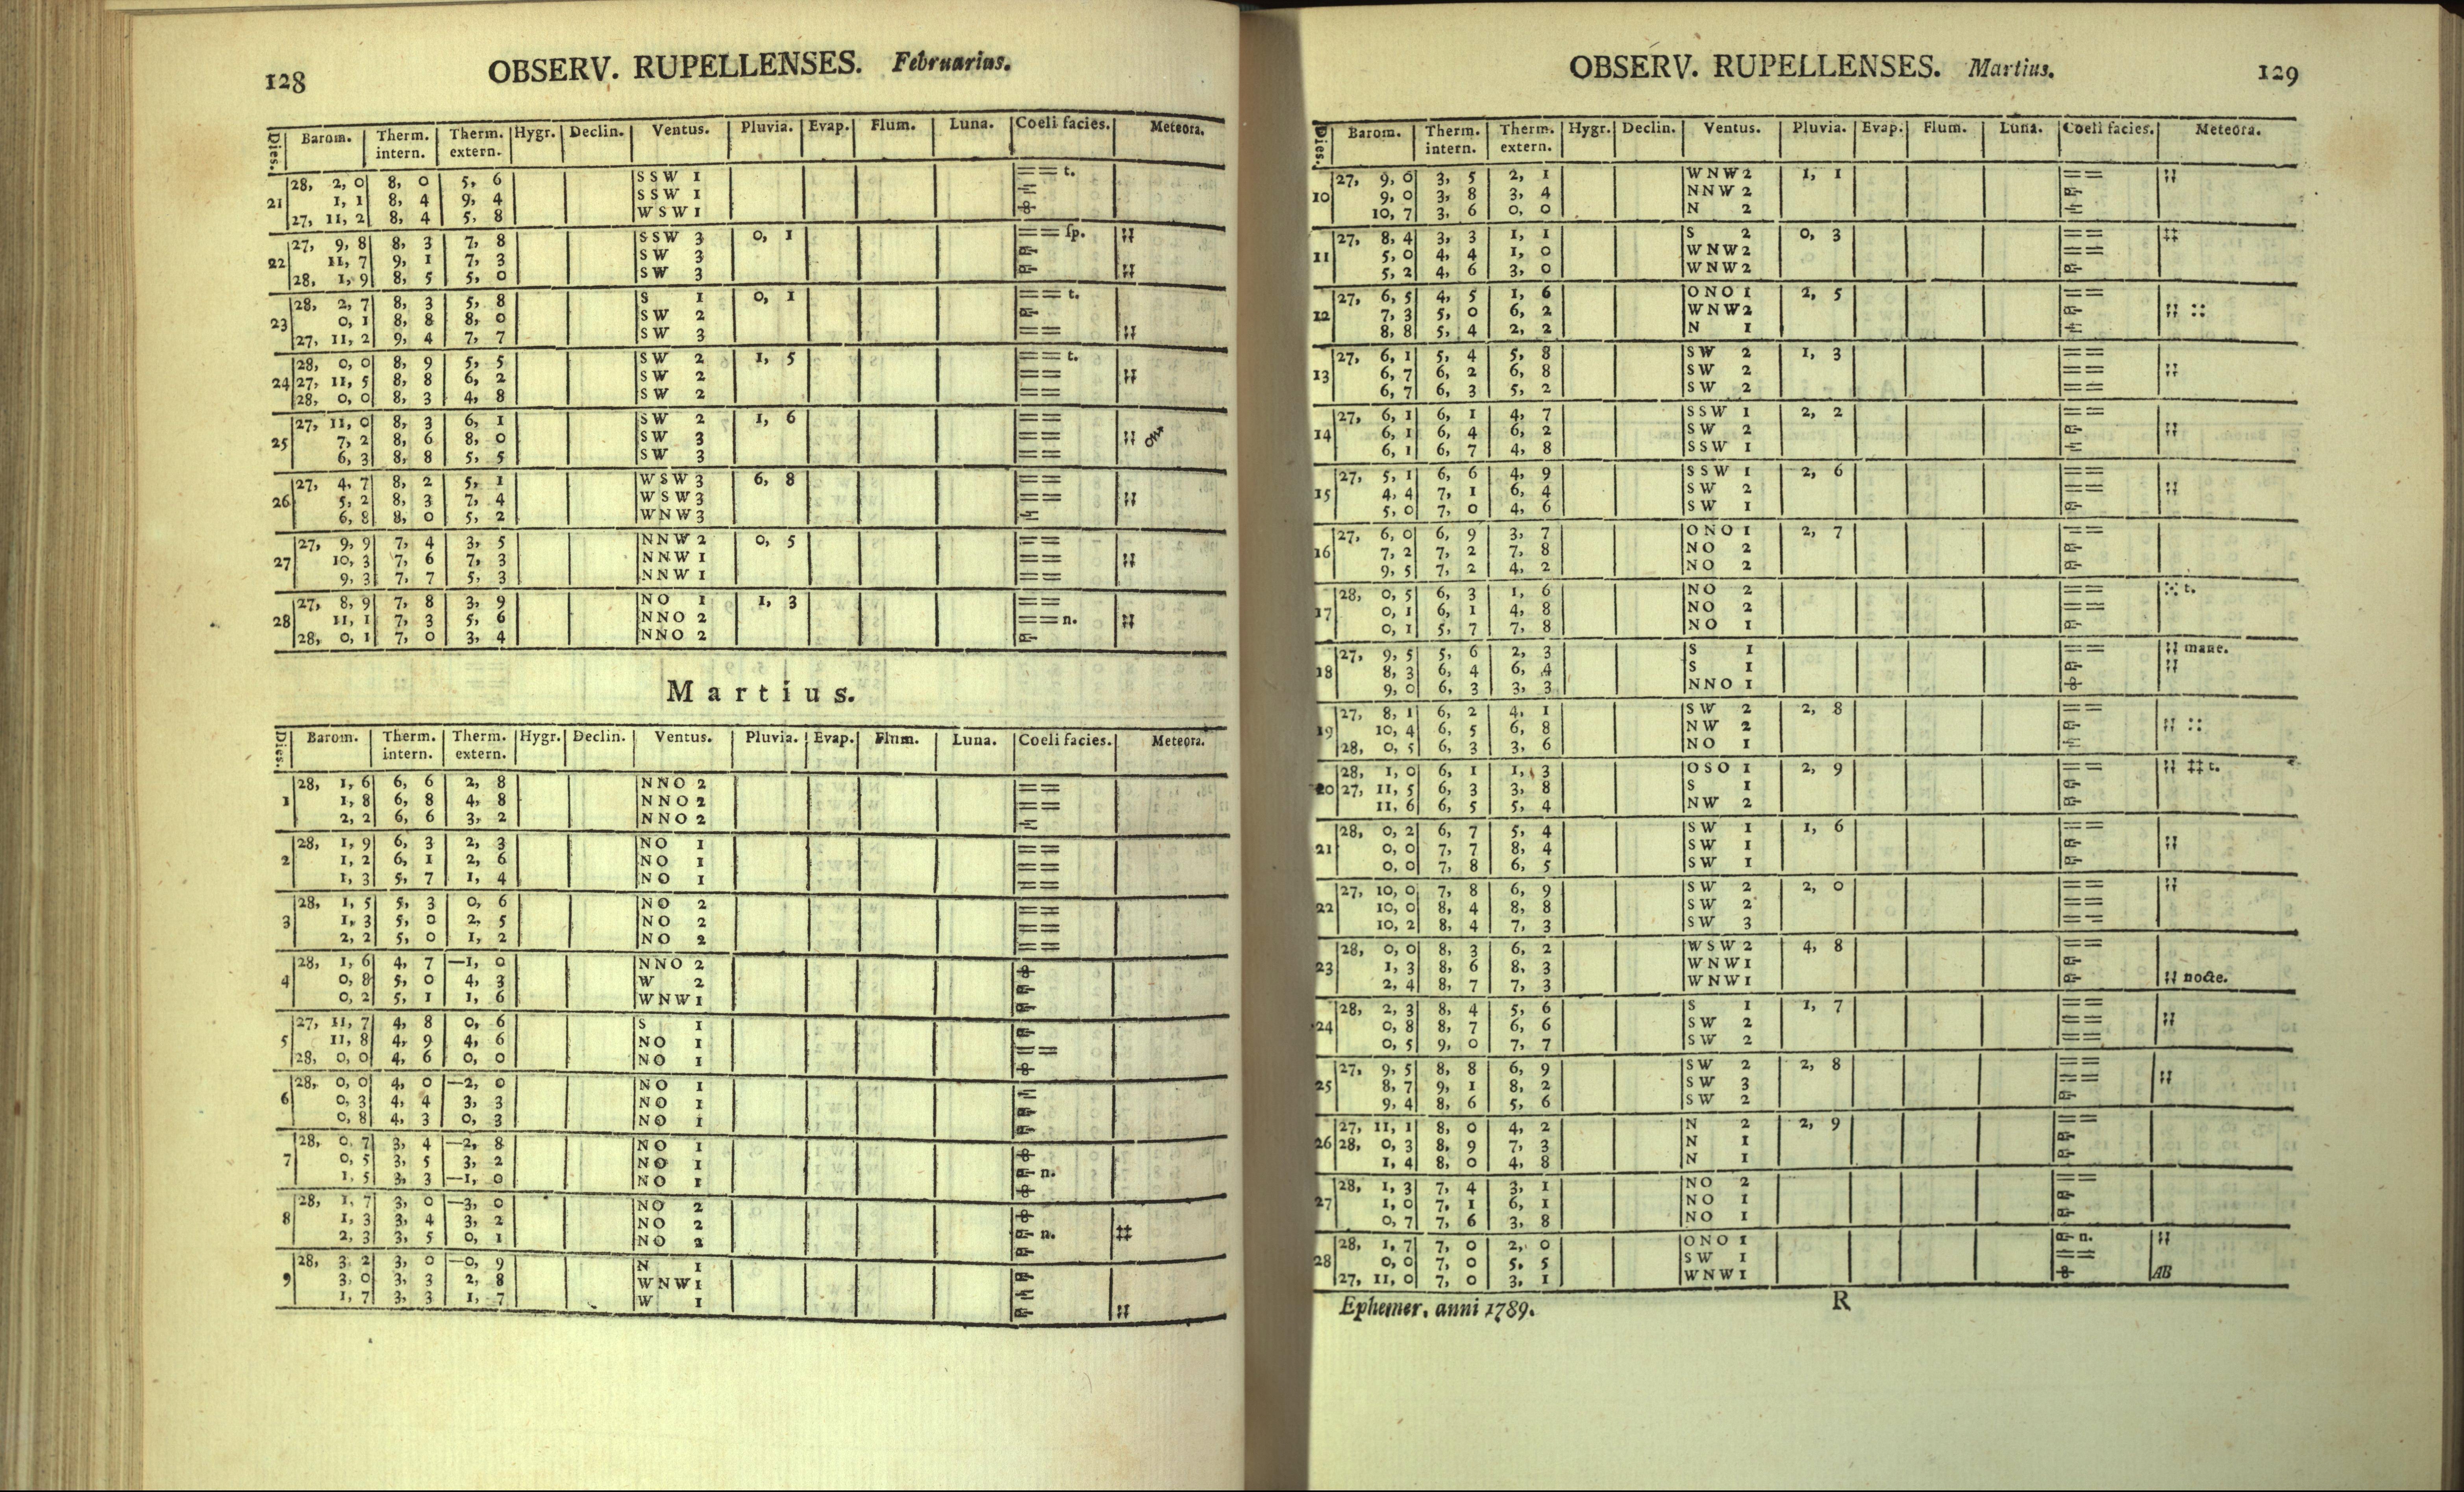 128 OBSERV. RUPELLENSES. Februarius.
Dies. Barom. Therm. intern. Therm. extern. Hygr. Declin. Ventus. Pluvia. Evap. Flum. Luna. Coeli facies. Meteora.
28, 2, 0 8, 0 5, 6 SSW 1 == t.
21 1, 1 8, 4 9, 4 SSW 1
27, 11, 2 8, 4 5, 8 WSW 1
27, 9, 8 8, 3 7, 8 SSW 3 0, 1 == sp.
22 11, 7 9, 1 7, 3 SW 3
28, 1, 9 8, 5 5, 0 SW 3
28, 2, 7 8, 3 5, 8 S 1 0, 1 == t.
23 0, 1 8, 8 8, 0 SW 2
27, 11, 2 9, 4 7, 7 SW 3 ==
28, 0, 0 8, 9 5, 5 SW 2 1, 5 == t.
24 27, 11, 5 8, 8 6, 2 SW 2 ==
28, 0, 0 8, 3 4, 8 SW 2 ==
27, 11, 0 8, 3 6, 1 SW 2 1, 6 ==
25 7, 2 8, 6 8, 0 SW 3 ==
6, 3 8, 8 5, 5 SW 3 ==
27, 4, 7 8, 2 5, 1 WSW 3 6, 8 ==
26 5, 2 8, 3 7, 4 WSW 3 ==
6, 8 8, 0 5, 2 WNW 3
27, 9, 9 7, 4 3, 5 NNW 2 0, 5 ==
27 10, 3 7, 6 7, 3 NNW 1 ==
9, 3 7, 7 5, 3 NNW 1 ==
27, 8, 9 7, 8 3, 9 NO 1 1, 3 ==
28 11, 1 7, 3 5, 6 NNO 2 == n.
28, 0, 1 7, 0 3, 4 NNO 2
Martius.
Dies. Barom. Therm. intern. Therm. extern. Hygr. Declin. Ventus. Pluvia. Evap. Flum. Luna. Coeli facies. Meteora.
28, 1, 6 6, 6 2, 8 NNO 2 ==
1 1, 8 6, 8 4, 8 NNO 2 ==
2, 2 6, 6 3, 2 NNO 2
28, 1, 9 6, 3 2, 3 NO 1 ==
2 1, 2 6, 1 2, 6 NO 1 ==
1, 3 5, 7 1, 4 NO 1 ==
28, 1, 5 5, 3 0, 6 NO 2 ==
3 1, 3 5, 0 2, 5 NO 2 ==
2, 2 5, 0 1, 2 NO 2 ==
28, 1, 6 4, 7 —1, 0 NNO 2
4 0, 8 5, 0 4, 3 W 2
0, 2 5, 1 1, 6 WNW 1
27, 11, 7 4, 8 0, 6 S 1
5 11, 8 4, 9 4, 6 NO 1 ==
28, 0, 0 4, 6 0, 0 NO 1
28, 0, 0 4, 0 —2, 0 NO 1
6 0, 3 4, 4 3, 3 NO 1
0, 8 4, 3 0, 3 NO 1
28, 0, 7 3, 4 —2, 8 NO 1
7 0, 5 3, 5 3, 2 NO 1 n.
1, 5 3, 3 —1, 0 NO 1
28, 1, 7 3, 0 —3, 0 NO 2
8 1, 3 3, 4 3, 2 NO 2 n.
2, 3 3, 5 0, 1 NO 2
28, 3, 2 3, 0 —0, 9 N 1
9 3, 0 3, 3 2, 8 WNW 1
1, 7 3, 3 1, 7 W 1
OBSERV. RUPELLENSES. Martius. 129
Dies. Barom. Therm. intern. Therm. extern. Hygr. Declin. Ventus. Pluvia. Evap. Flum. Luna. Coeli facies. Meteora.
27, 9, 6 3, 5 2, 1 WNW 2 1, 1 ==
10 9, 0 3, 8 3, 4 NNW 2
10, 7 3, 6 0, 0 N 2
27, 8, 4 3, 3 1, 1 S 2 0, 3 ==
11 5, 0 4, 4 1, 0 WNW 2 ==
5, 2 4, 6 3, 0 WNW 2
27, 6, 5 4, 5 1, 6 ONO 1 2, 5 ==
12 7, 3 5, 0 6, 2 WNW 2
8, 8 5, 4 2, 2 N 1
27, 6, 1 5, 4 5, 8 SW 2 1, 3 ==
13 6, 7 6, 2 6, 8 SW 2 ==
6, 7 6, 3 5, 2 SW 2 ==
27, 6, 1 6, 1 4, 7 SSW 1 2, 2 ==
14 6, 1 6, 4 6, 2 SW 2
6, 1 6, 7 4, 8 SSW 1
27, 5, 1 6, 6 4, 9 SSW 1 2, 6 ==
15 4, 4 7, 1 6, 4 SW 2 ==
5, 0 7, 0 4, 6 SW 1
27, 6, 0 6, 9 3, 7 ONO 1 2, 7 ==
16 7, 2 7, 2 7, 8 NO 2
9, 5 7, 2 4, 2 NO 2
28, 0, 5 6, 3 1, 6 NO 2 == t.
17 0, 1 6, 1 4, 8 NO 2 ==
0, 1 5, 7 7, 8 NO 1
27, 9, 5 5, 6 2, 3 S 1 == mane.
18 8, 3 6, 4 6, 4 S 1
9, 0 6, 3 3, 3 NNO 1
27, 8, 1 6, 2 4, 1 SW 2 2, 8 ==
19 10, 4 6, 5 6, 8 NW 2
28, 0, 5 6, 3 3, 6 NO 1
28, 1, 0 6, 1 1, 3 OSO 1 2, 9 == t.
20 27, 11, 5 6, 3 3, 8 S 1
11, 6 6, 5 5, 4 NW 2
28, 0, 2 6, 7 5, 4 SW 1 1, 6 ==
21 0, 0 7, 7 8, 4 SW 1
0, 0 7, 8 6, 5 SW 1
27, 10, 0 7, 8 6, 9 SW 2 2, 0 ==
22 10, 0 8, 4 8, 8 SW 2 ==
10, 2 8, 4 7, 3 SW 3 ==
28, 0, 0 8, 3 6, 2 WSW 2 4, 8 ==
23 1, 3 8, 6 8, 3 WNW 1
2, 4 8, 7 7, 3 WNW 1 nocte.
28, 2, 3 8, 4 5, 6 S 1 1, 7 ==
24 0, 8 8, 7 6, 6 SW 2 ==
0, 5 9, 0 7, 7 SW 2 ==
27, 9, 5 8, 8 6, 9 SW 2 2, 8 ==
25 8, 7 9, 1 8, 2 SW 3 ==
9, 4 8, 6 5, 6 SW 2
27, 11, 1 8, 0 4, 2 N 2 2, 9 ==
26 28, 0, 3 8, 9 7, 3 N 1
1, 4 8, 0 4, 8 N 1
28, 1, 3 7, 4 3, 1 NO 2 ==
27 1, 0 7, 1 6, 1 NO 1
0, 7 7, 6 3, 8 NO 1
28, 1, 7 7, 0 2, 0 ONO 1 n.
28 0, 0 7, 0 5, 5 SW 1 ==
27, 11, 0 7, 0 3, 1 WNW 1 AB
Ephemer. anni 1789. R